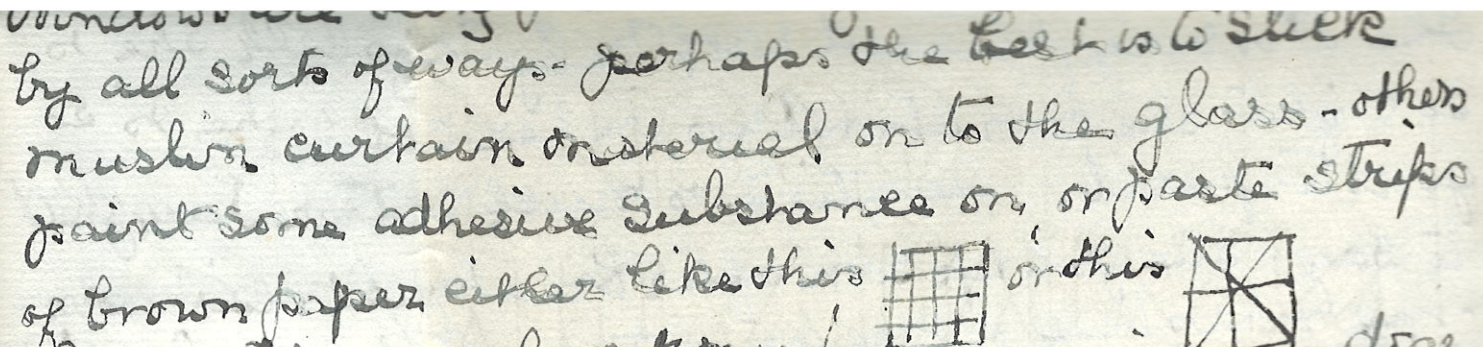 windows are
by all sorts of ways - perhaps the best is to stick
muslin curtain material on to the glass - others
paint some adhesive substance on, or paste strips
of brown paper either like this or this